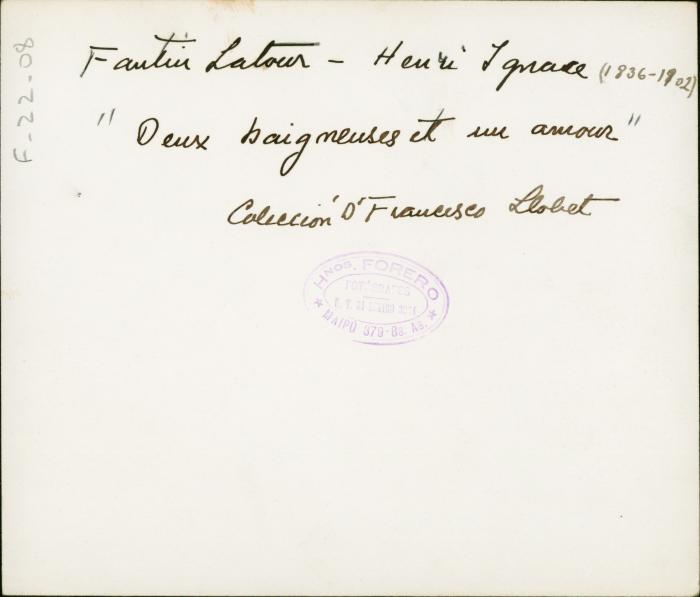 F-22-08
Fantin Latour - Henri Ignace (1836-1902)
"Deux baigneuses et un amour"
Colección Dr Francesco Llobet
HNOS. FORERO
FOTÓGRAFOS
MAIPÚ 379-Bs. As.